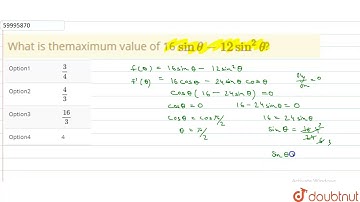 59995870
What is themaximum value of 16 sin θ – 12 sin² θ?
Option1 3/4
Option2 4/3
Option3 16/3
Option4 4
f(θ) = 16 sin θ – 12 sin² θ
f'(θ) = 16 cos θ – 24 sin θ cos θ
cos θ (16 – 24 sin θ) = 0
cos θ = 0 16 – 24 sin θ = 0
cos θ = cos π/2 16 = 24 sin θ
θ = π/2 sin θ =
sin θ
doubtnut